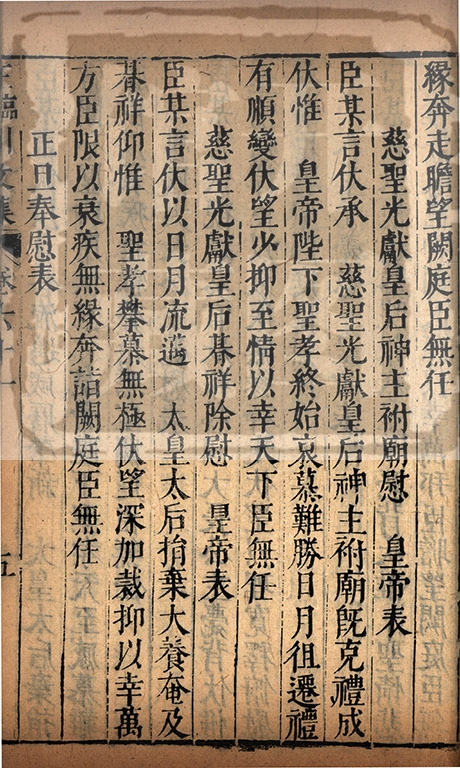 緣奔走瞻望闕庭臣無任
慈聖光獻皇后神主祔廟慰　皇帝表
臣某言伏承　慈聖光獻皇后神主祔廟旣克禮成
伏惟　皇帝陛下聖孝終始哀慕難勝日月徂遷禮
有順變伏望少抑至情以幸天下臣無任
慈聖光獻皇后朞祥除慰　皇帝表
臣某言伏以日月流邁　太皇太后捐棄大養奄及
朞祥仰惟　聖孝攀慕無極伏望深加裁抑以幸萬
方臣限以衰疾無緣奔詣闕庭臣無任
正旦奉慰表
王臨川文集　卷六十一　五